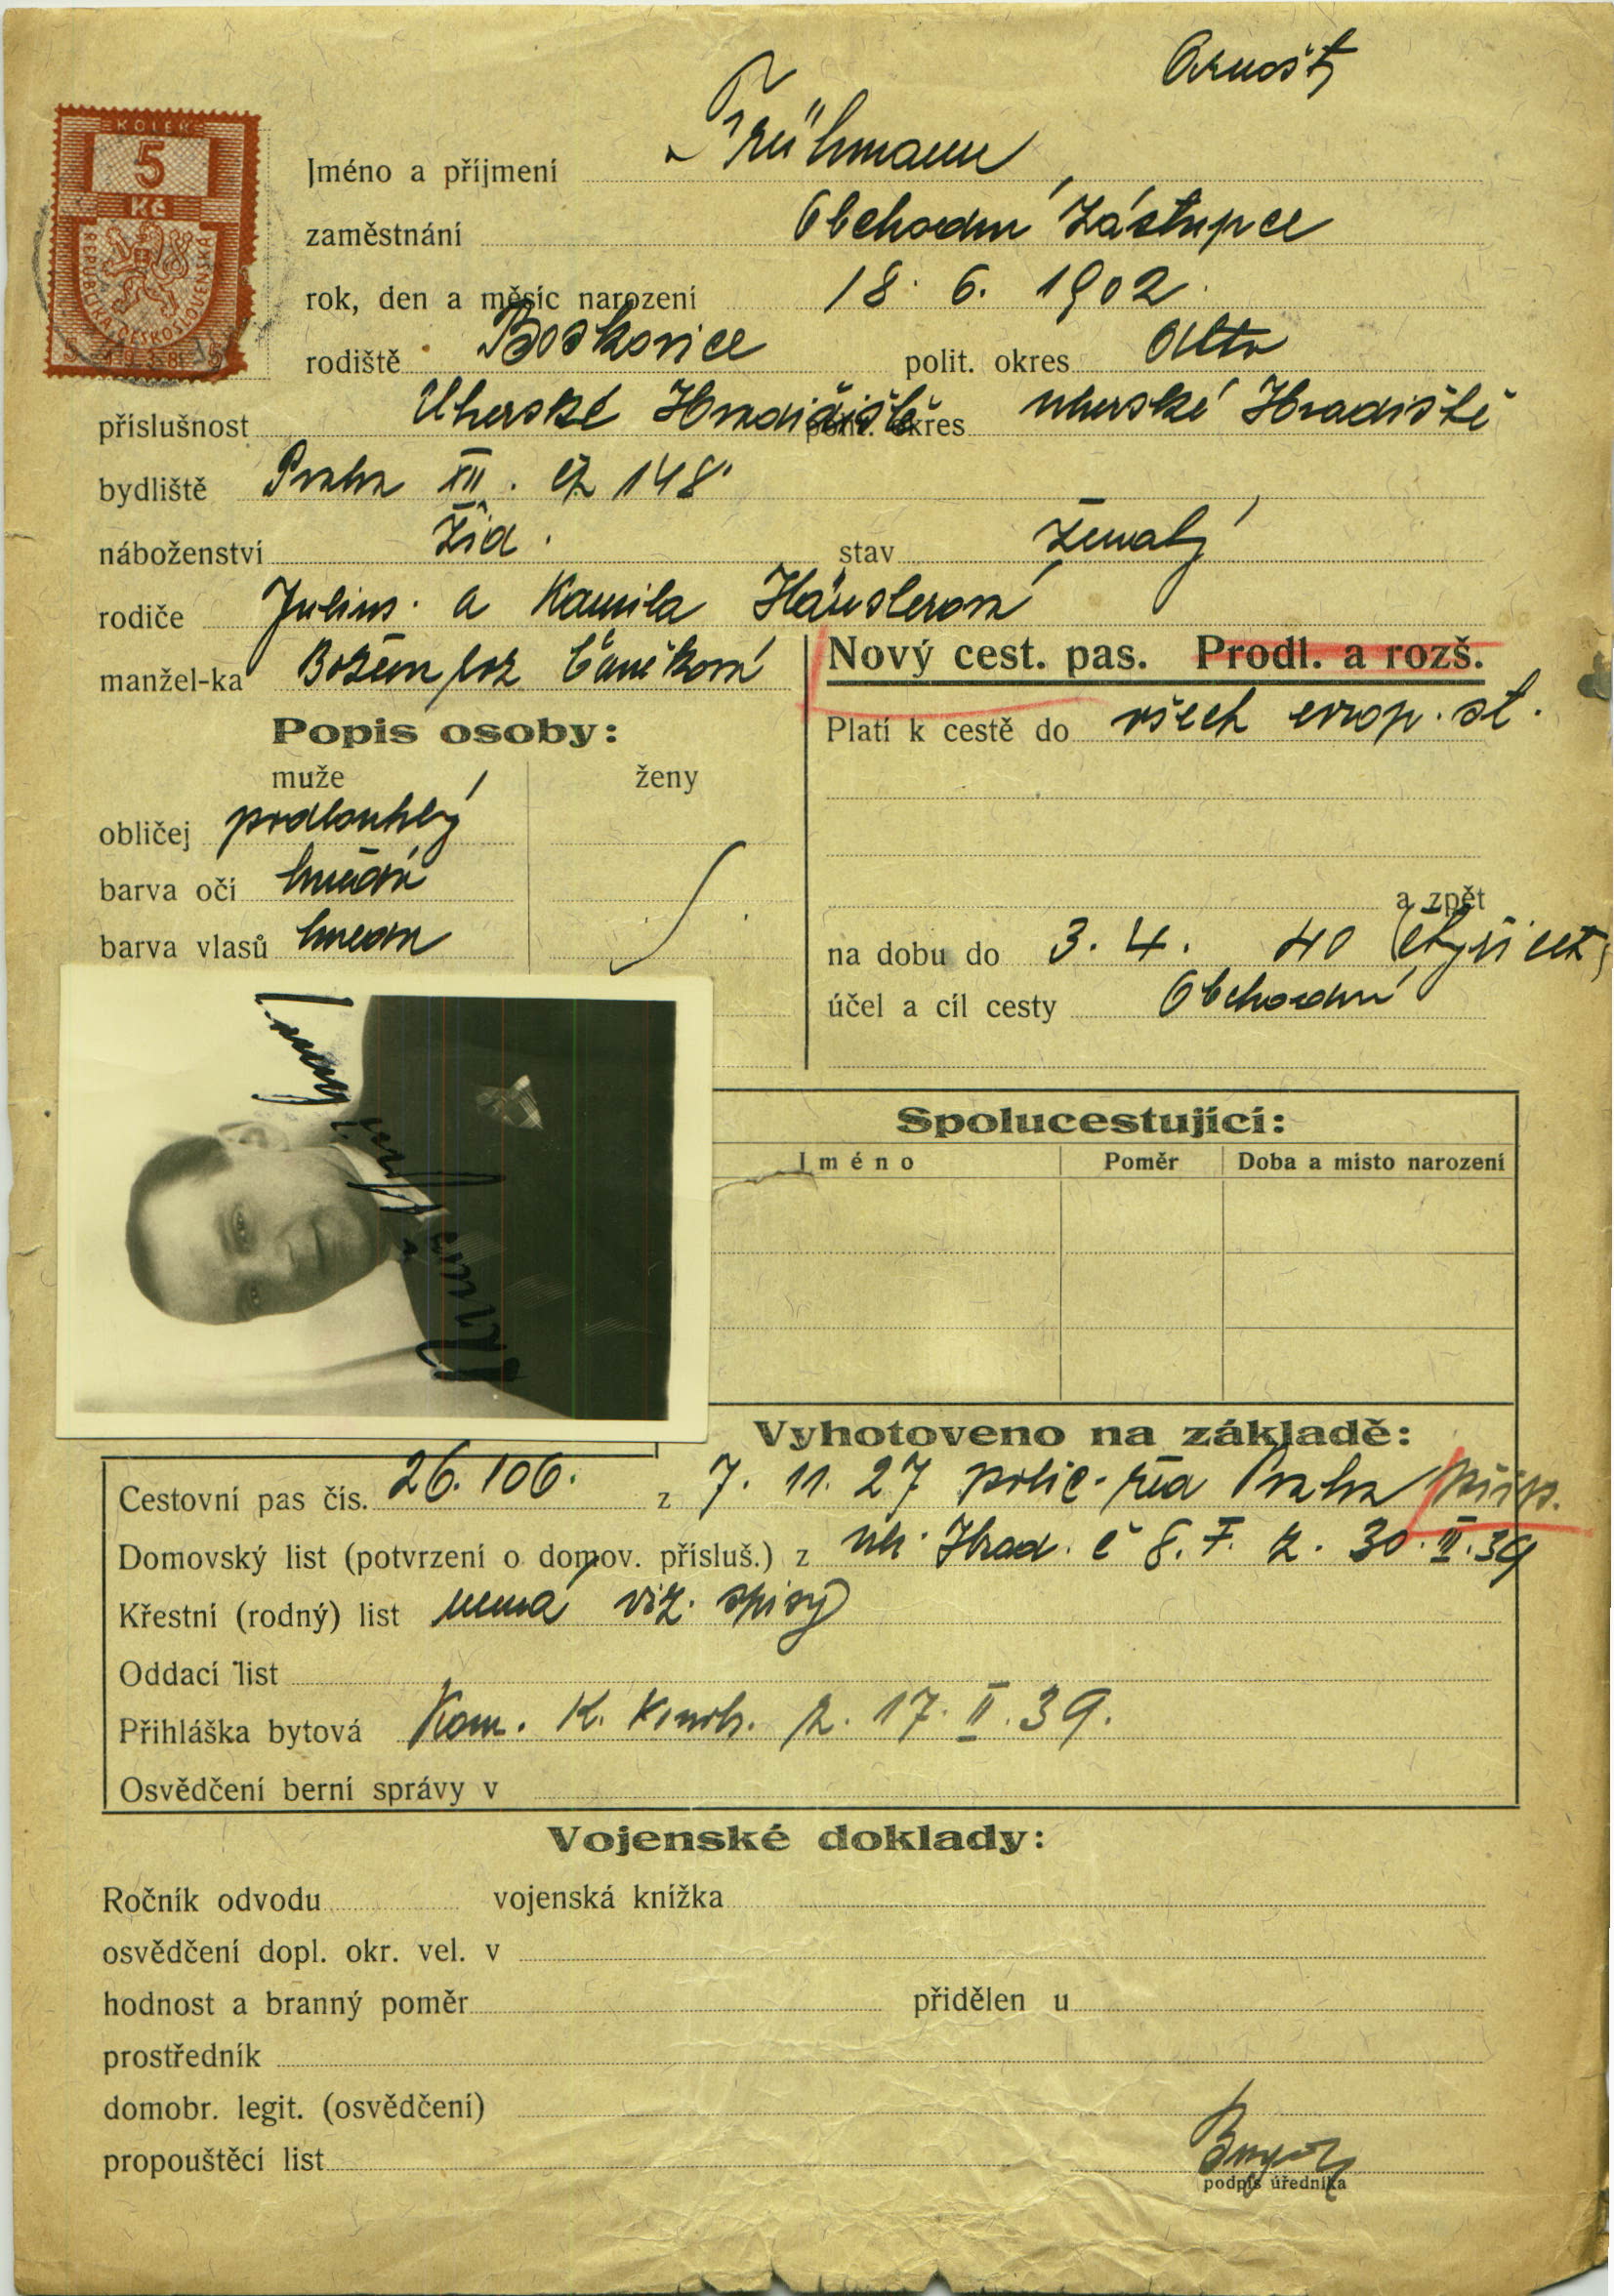 Arnošt
KOLEK
5
Kč
REPUBLIKA ČESKOSLOVENSKÁ
Jméno a příjmení Frühmann
zaměstnání Obchodní zástupce
rok, den a měsíc narození 18. 6. 1902.
rodiště Boskovice polit. okres dtto
příslušnost Uherské Hradiště polit. okres uherské Hradiště
bydliště Praha XII. čp 148
náboženství žid. stav ženatý
rodiče Julius a Kamila Häuslerová
manžel-ka Božena roz
Nový cest. pas. Prodl. a rozš.
Platí k cestě do všech evrop. st.
a zpět
na dobu do 3. 4. 40 (čtyřicet)
účel a cíl cesty Obchodní
Popis osoby:
muže ženy
obličej podlouhlý
barva očí hnědá
barva vlasů hnědá
Arnošt Frühmann
Spolucestující:
Jméno Poměr Doba a místo narození
Vyhotoveno na základě:
Cestovní pas čís. 26.106. z 7. 11. 27 polic. řed Praha přip.
Domovský list (potvrzení o domov. přísluš.) z uh. Hrad. č 8. z. 30. 39
Křestní (rodný) list nemá viz. spisy
Oddací list
Přihláška bytová Kom. K. z. 17. II. 39.
Osvědčení berní správy v
Vojenské doklady:
Ročník odvodu vojenská knížka
osvědčení dopl. okr. vel. v
hodnost a branný poměr přidělen u
prostředník
domobr. legit. (osvědčení)
propouštěcí list
podpis úředníka